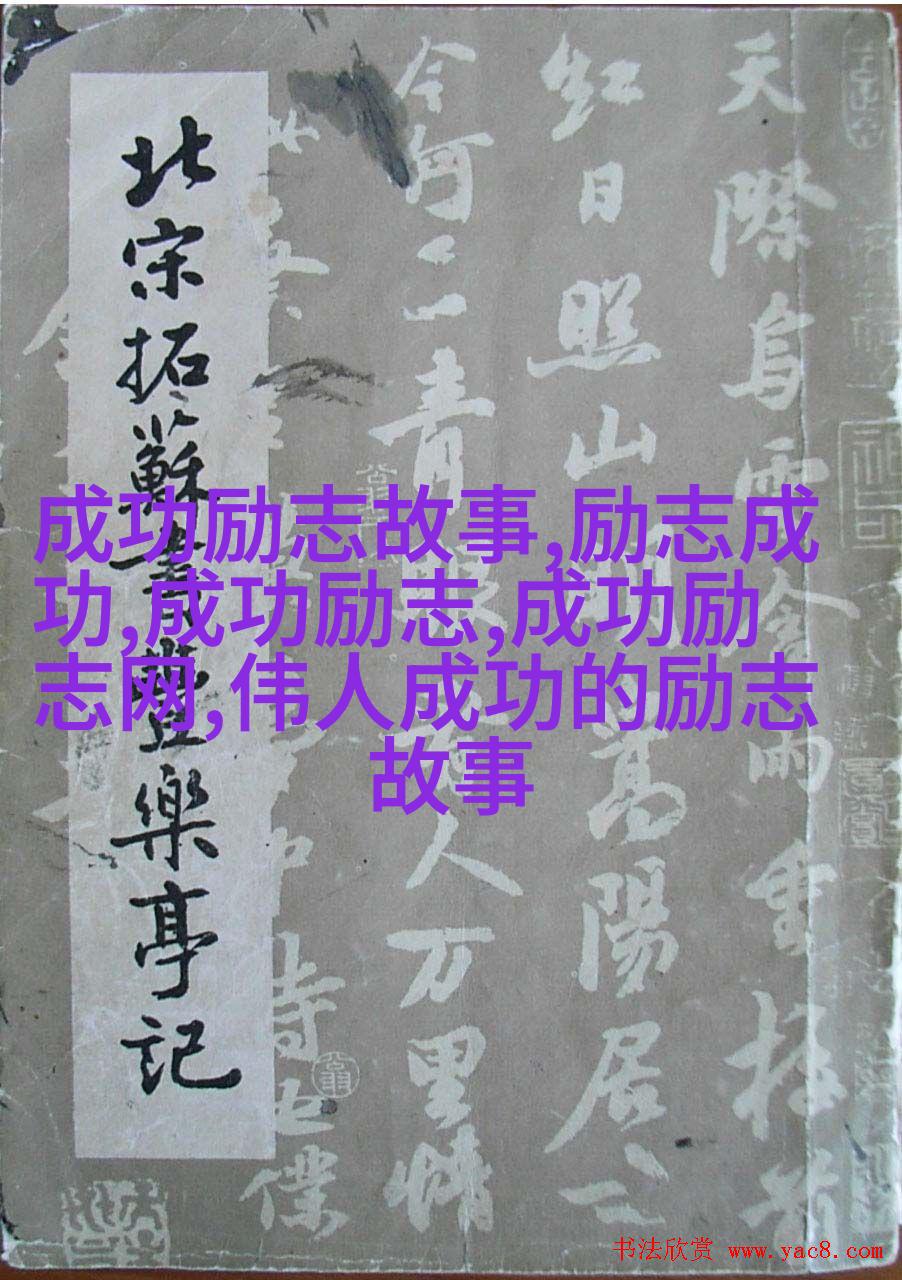 北宋拓蘇書豐樂亭記
天際烏雲含雨重樓前
紅日照山明嵩陽居士
今何在青眼看人万里情
此蔡中詩也僕
成功励志故事,励志成
功,成功励志,成功励
志网,伟人成功的励志
故事
书法欣赏 www.yac8.com